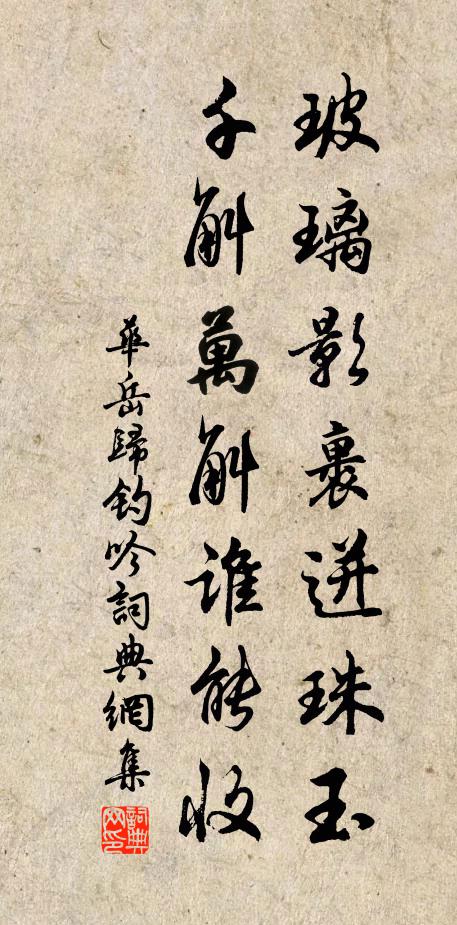 玻璃影裹迸珠玉
千斛萬斛誰能收
華岳歸釣吟詞典網集
詞典網印